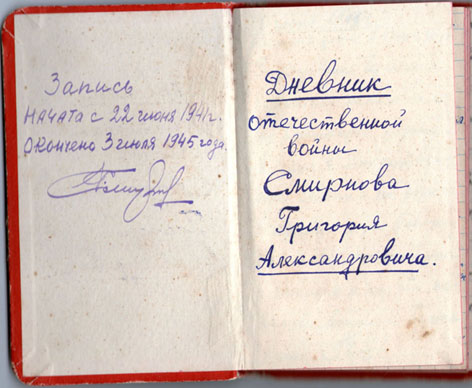 Запись
НАЧАТА с 22 июня 1941г.
Окончено 3 июля 1945 года.
Дневник
Отечественной
войны
Смирнова
Григория
Александровича.